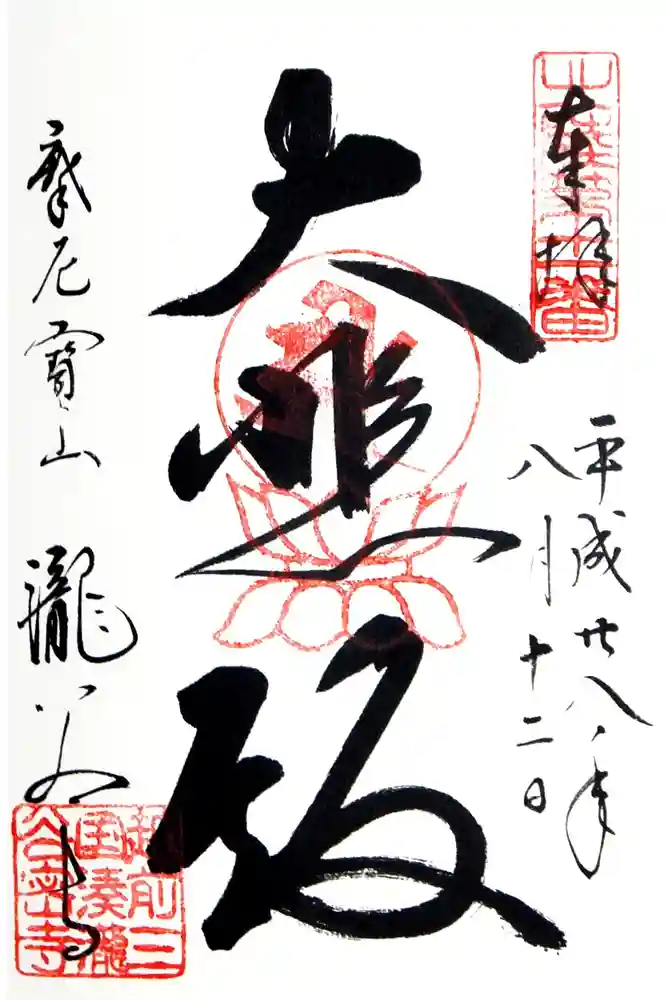 奉拝
平成廿八年
八月十二日
大悲殿
摩尼寳山 瀧谷寺
越前三
国湊瀧
谷寺